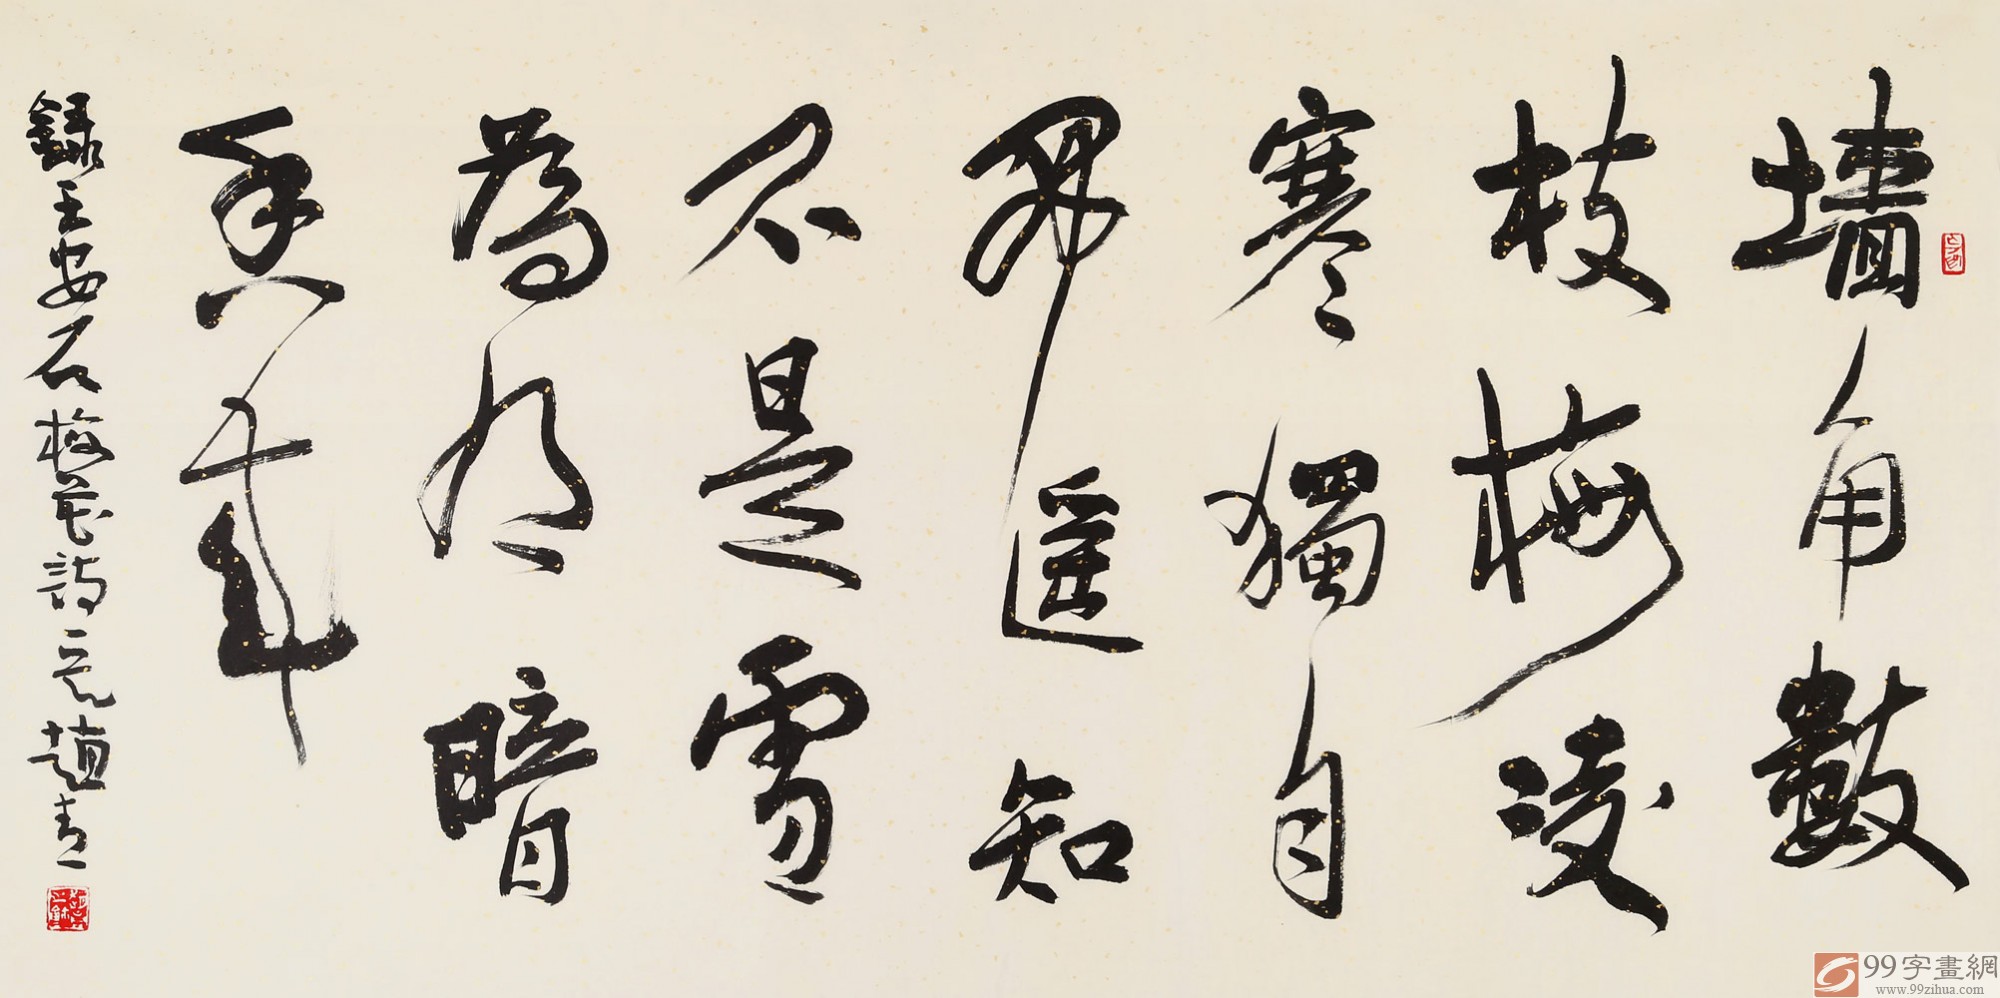 墙角數
枝梅凌
寒獨自
開遥知
不是雪
為有暗
香来
録王安石梅花詩一首趙青
99字畫網
www.99zihua.com